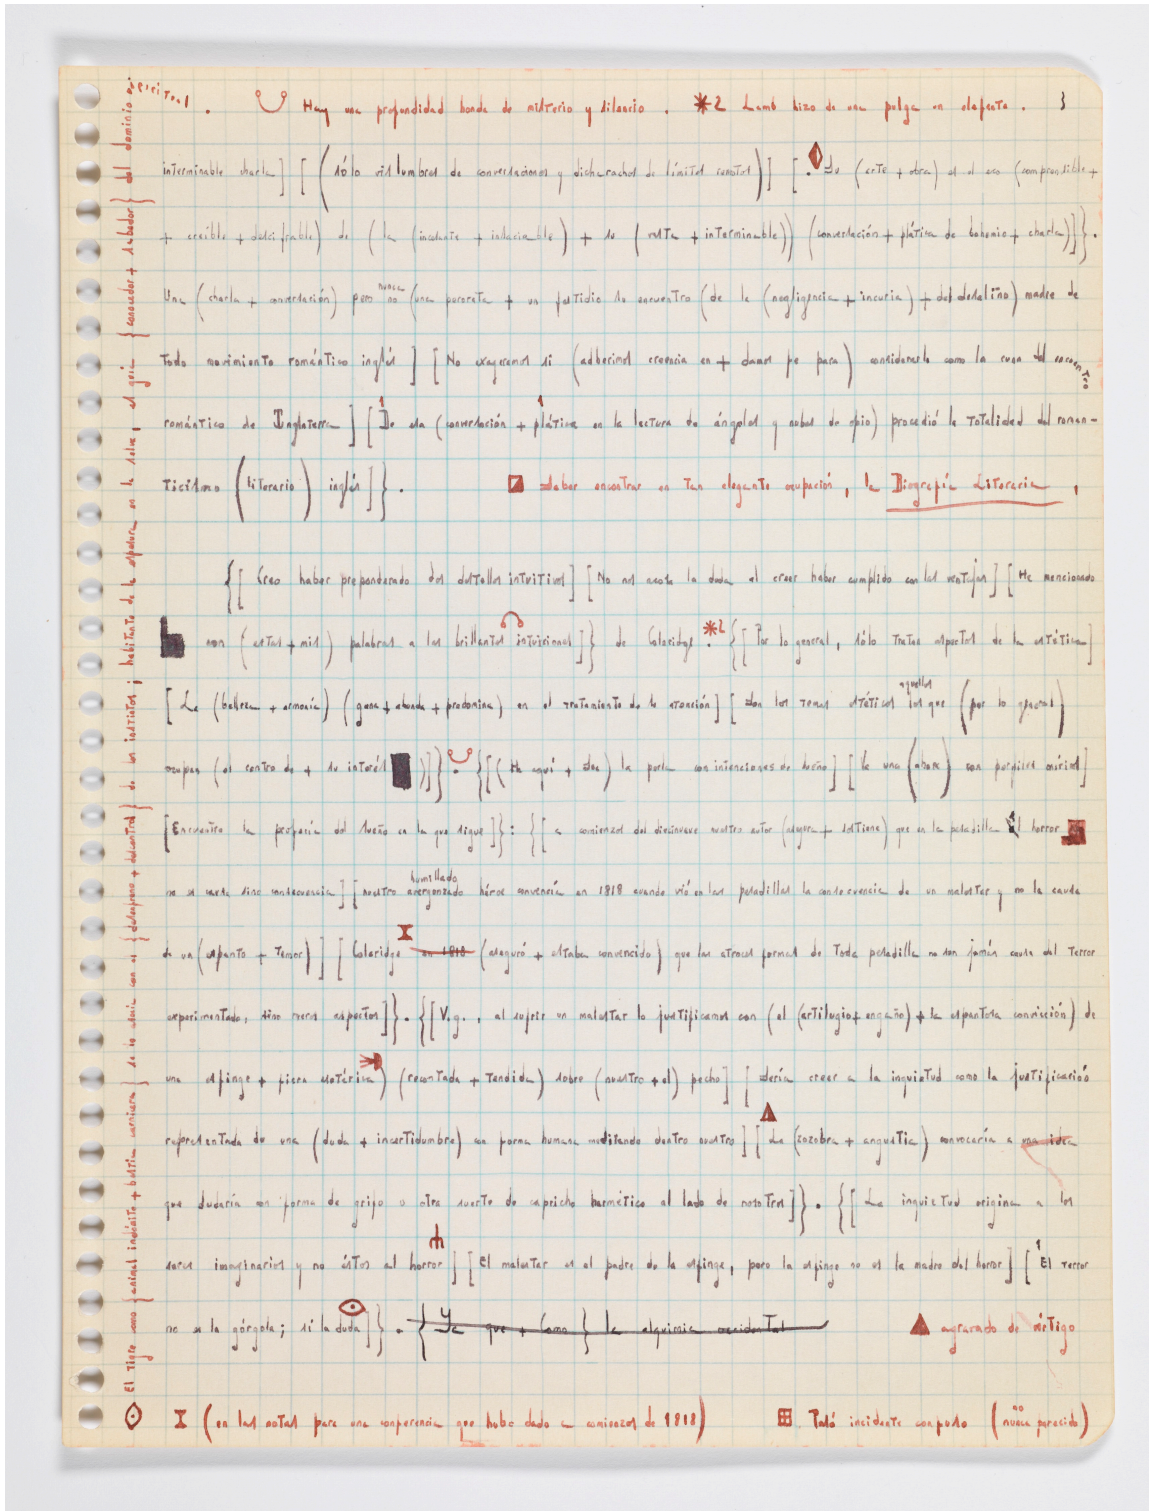 Hay una profundidad honda de misterio y silencio . *2 Lamb hizo de una pulga un elefante . }
interminable charla ] [ ( sólo vislumbres de conversaciones y dicharachos de límites remotos ) ] [ . Su (arte + obra) es el eco (comprensible +
+ creíble + descifrable) de ( la (incesante + insaciable) + su ( vasta + interminable)) (conversación + plática de bohemio + charla)]} .
Una (charla + conversación) pero nunca no (una perorata + un fastidio su encuentro (de la (negligencia + incuria) + del desaliño) madre de
todo movimiento romántico inglés ] [ No exageramos si (adherimos creencia en + damos fe para) considerarla como la
romántico de Inglaterra ] [ De esa (conversación + plática en la lectura de ángeles y nubes de opio) procedió la totalidad del roman-
ticismo ( literario ) inglés ] } . Saber encontrar en tan elegante ocupación , la Biografía Literaria ,
{ [ Creo haber preponderado dos destellos intuitivos ] [ No nos acosa la duda al creer haber cumplido con las ventajas ] [ He mencionado
con (estas + mis) palabras a las brillantes intuiciones ] } de Coleridge . *2 { [ Por lo general , sólo trata aspectos de la estética ]
[ La (belleza + armonía) (gana + abunda + predomina) en el tratamiento de la atención ] [ Son los temas estéticos aquellos los que (por lo general)
ocupan (el centro de + su interés )]} . {[( He aquí + Sea) la perla con intenciones de sueño ] [ Ve una (ahora) con perfiles oníricos ]
[Encuentro la profecía del sueño en la que sigue ]} : {[ a comienzos del diecinueve nuestro autor (asegura + sostiene) que en la pesadilla el horror
no es causa sino consecuencia ] [ nuestro humillado avergonzado héroe convenía en 1818 cuando vió en las pesadillas la consecuencia de un malestar y no la causa
de un (espanto + temor) ] [ Coleridge en 1818 (aseguró + estaba convencido) que las atroces formas de toda pesadilla no son jamás causa del terror
experimentado, sino meros aspectos ] } . { [ V.g. , al sufrir un malestar lo justificamos con (el (artilugio + engaño) + la espantosa convicción) de
una esfinge + fiera esotérica ) (recostada + tendida) sobre (nuestro + el) pecho ] [ Sería creer a la inquietud como la justificación
representada de una (duda + incertidumbre) con forma humana meditando dentro nuestro ] [ La (zozobra + angustia) convocaría a una idea
que dudaría con forma de grifo u otra suerte de capricho hermético al lado de nosotros ] } . { [ La inquietud origina a los
seres imaginarios y no éstos al horror ] [ El malestar es el padre de la esfinge, pero la esfinge no es la madre del horror ] [ El terror
no es la górgola ; sí la duda ] } . { Ya que + Como } la alquimia occidental agravado de vértigo
(en las notas para una conferencia que hubo dado a comienzos de 1818) Pasó incidente confuso (no nunca parecido)
El tigre como {animal indómito + bestia carnicera} de lo atroz con el {desenfreno + descontrol} de los instintos ; habitante de la espesura en la selva , el guía {conocedor + sabedor} del dominio espiritual .